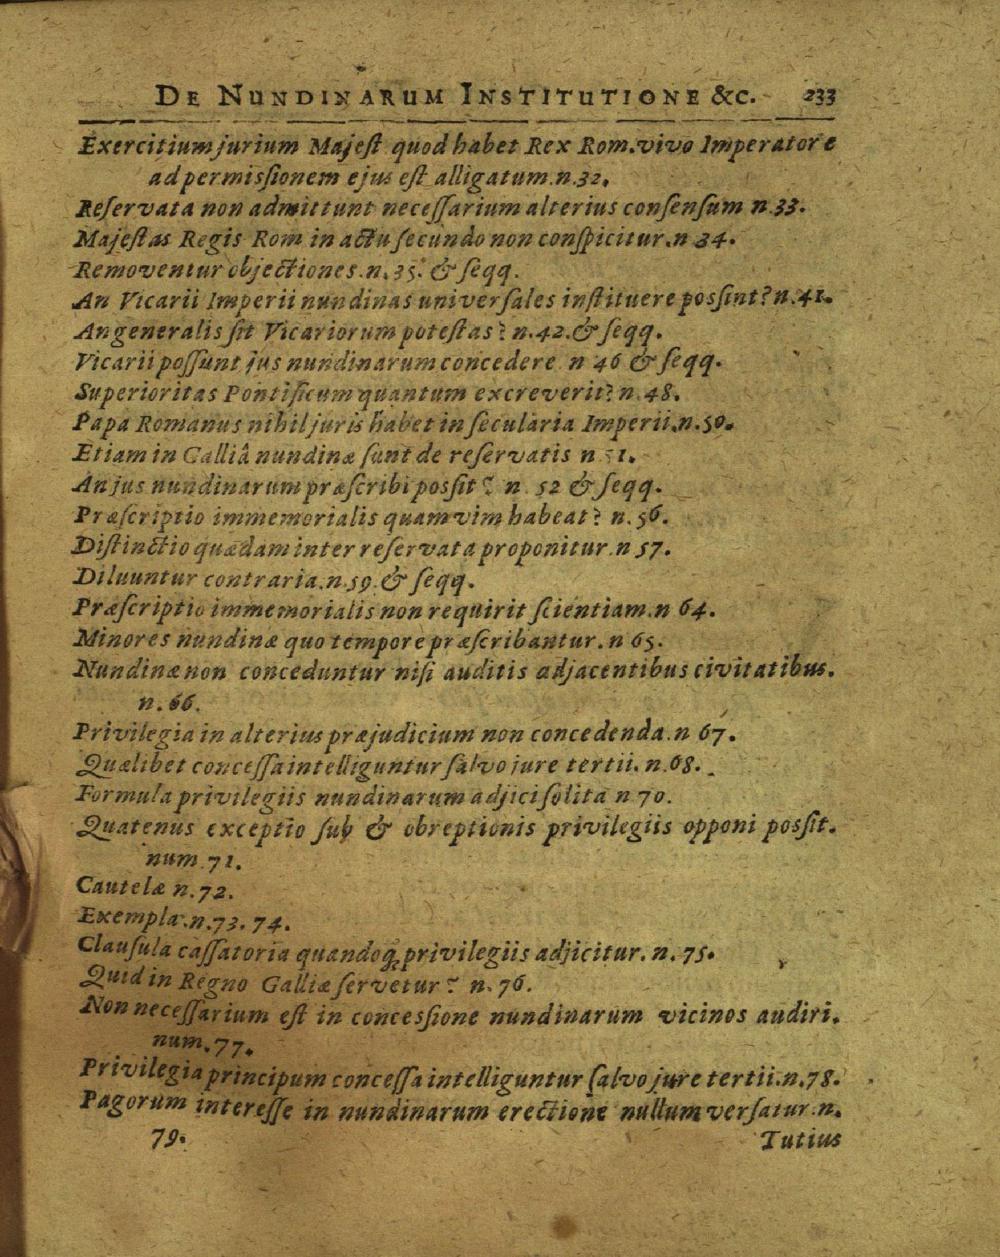 DE NUNDINARUM INSTITUTIONE &c. 233
Exercitium jurium Majest quod habet Rex Rom. vivo Imperatore
ad permissionem ejus est alligatum. n. 32.
Reservata non admittunt necessarium alterius consensum n. 33.
Majestas Regis Rom in actu secundo non conspicitur. n 34.
Removentur objectiones. n. 35. & seqq.
An Vicarii Imperii nundinas universales instituere possint? n. 41.
An generalis sit Vicariorum potestas? n. 42. & seqq.
Vicarii possunt jus nundinarum concedere n 46 & seqq.
Superioritas Pontificum quantum excreverit? n. 48.
Papa Romanus nihil juris habet in secularia Imperii. n. 50.
Etiam in Galliâ nundinæ sunt de reservatis n 51.
An jus nundinarum præscribi possit? n 52 & seqq.
Præscriptio immemorialis quam vim habeat? n. 56.
Distinctio quædam inter reservata proponitur. n 57.
Diluuntur contraria. n. 59. & seqq.
Præscriptio immemorialis non requirit scientiam. n 64.
Minores nundinæ quo tempore præscribantur. n 65.
Nundinæ non conceduntur nisi auditis adjacentibus civitatibus.
n. 66.
Privilegia in alterius præjudicium non concedenda. n 67.
Quælibet concessa intelliguntur salvo jure tertii. n. 68.
Formula privilegiis nundinarum adjici solita n 70.
Quatenus exceptio sub & obreptionis privilegiis opponi possit.
num 71.
Cautelæ n. 72.
Exempla. n. 73. 74.
Clausula cassatoria quandoq; privilegiis adjicitur. n. 75.
Quid in Regno Galliæ servetur? n. 76.
Non necessarium est in concessione nundinarum vicinos audiri.
num. 77.
Privilegia principum concessa intelliguntur salvo jure tertii. n. 78.
Pagorum interesse in nundinarum erectione nullum versatur. n.
79. Tutius